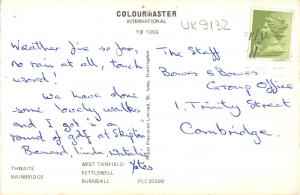 COLOURMASTER
INTERNATIONAL
YD 1355
UK9132
Weather fine so far,
no rain at all, touch
wood!
We have done
some lovely walks
and I got in a
round of golf at Skipton
Bernard, Linda, Natalie
Yates
The Staff
Bowes & Bowes
Group Office
1, Trinity Street
Cambridge.
Photo Precision Limited, St. Ives, Huntingdon
THWAITE
BAINBRIDGE
WEST TANFIELD
KETTLEWELL
BURNSALL
PLC20599